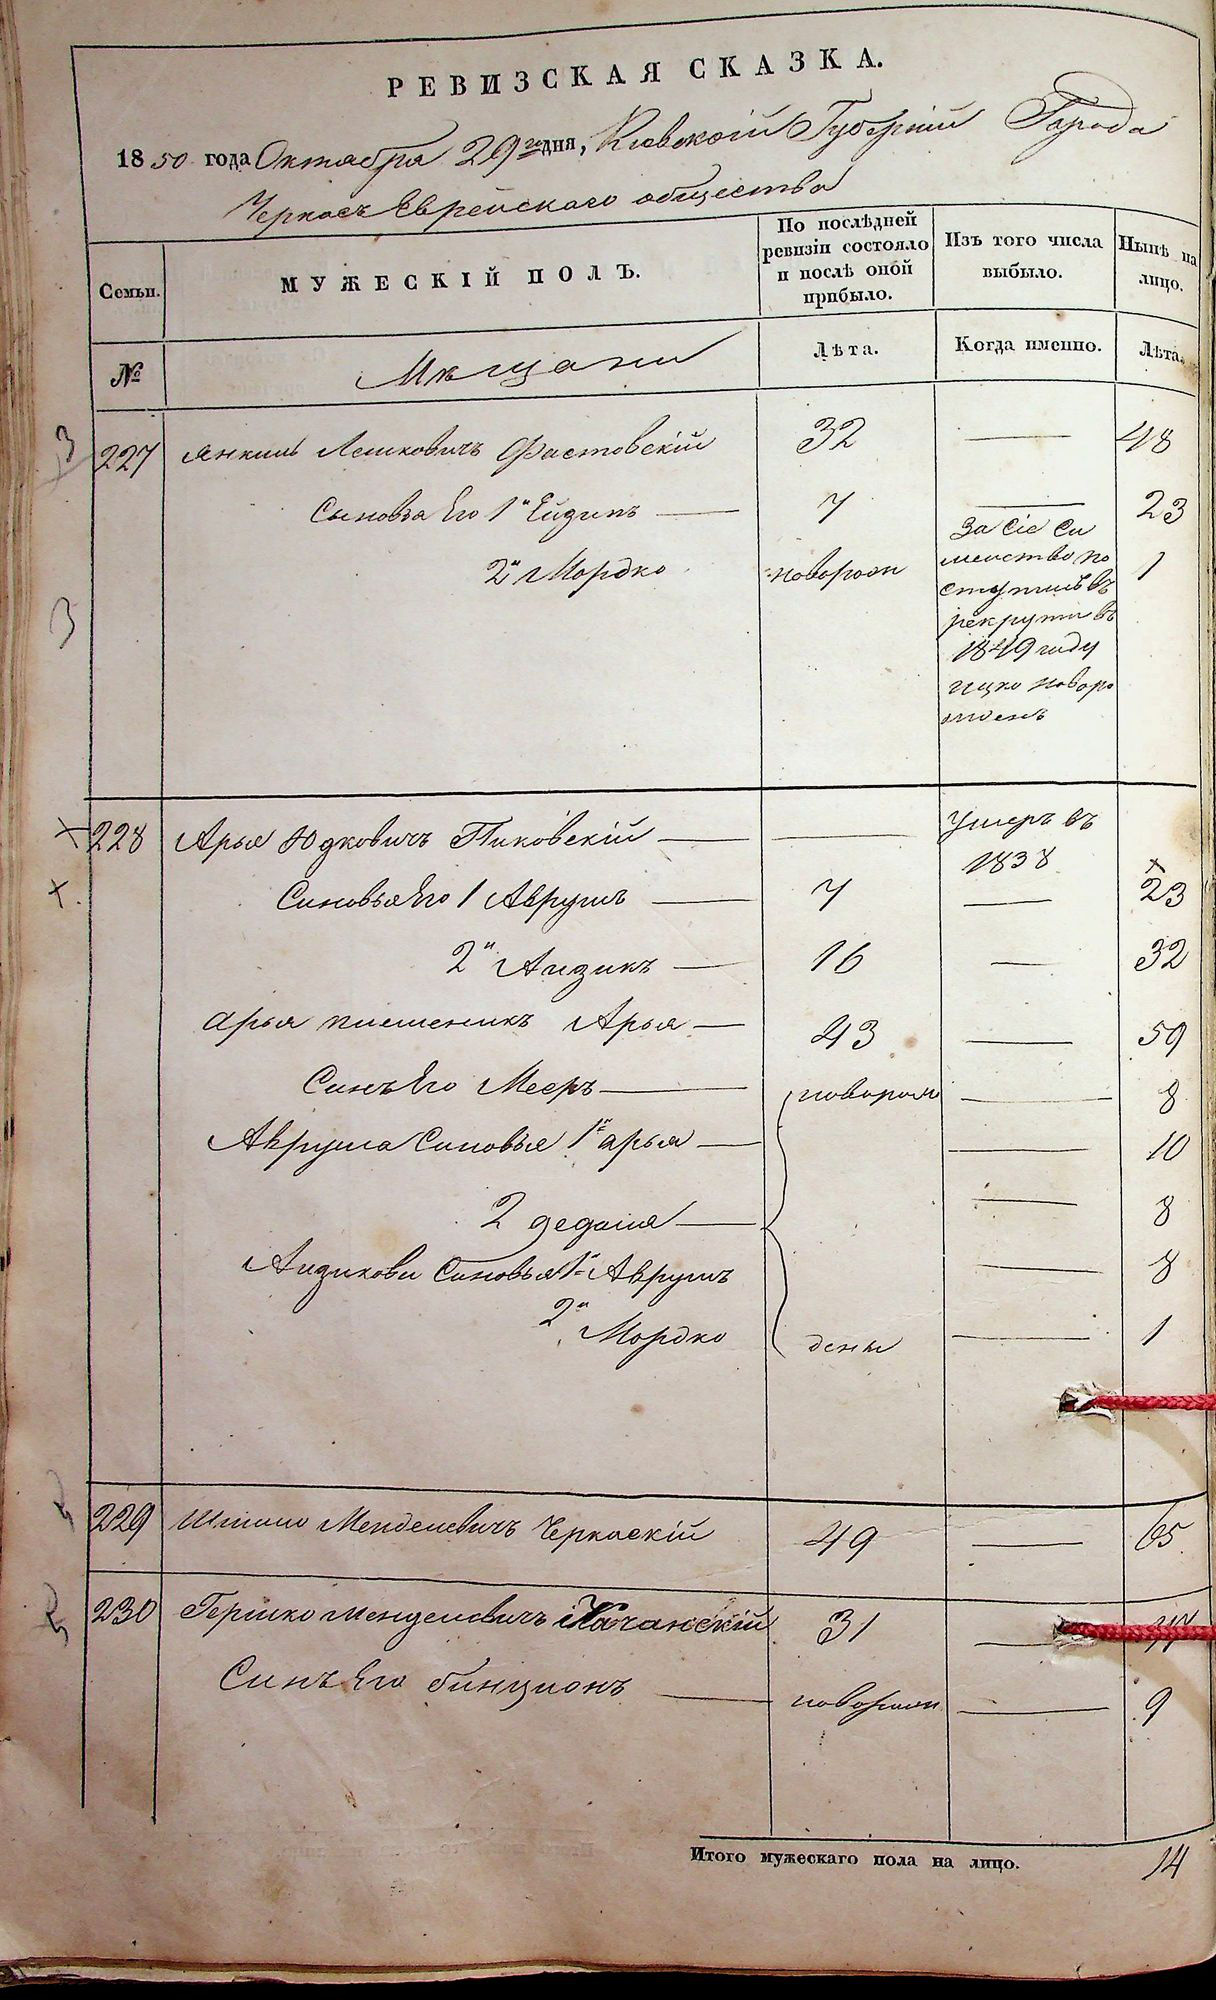 РЕВИЗСКАЯ СКАЗКА.
1850 года Октября 29го дня, Киевской Губернии Города
Черкасъ Еврейскаго общества
Семьи. МУЖЕСКІЙ ПОЛЪ. По послѣдней ревизіи состояло и послѣ оной прибыло. Изъ того числа выбыло. Нынѣ на лицо.
№ Мѣщани Лѣта. Когда именно. Лѣта.
3
227 Янкель Лейковичъ Фастовскій 32 — 48
Сыновья Его 1й Ейзикъ — 7 — 23
2й Мордко новорож 1
За сіе се
мейство по
ступилъ въ
рекруты въ
1849 году
Ицко новоро
жденъ
3
228 Арья Юдковичъ Пиковскій — — Умеръ въ
1838
Синовья Его 1 Аврумъ — 7 — 23
2й Аизикъ — 16 — 32
Арья племеникъ Арья — 43 — 59
Синъ Его Мееръ — новорож — 8
Аврума Синовье 1й Арья — — 10
2 — — 8
Аизикови Синовья 1й Аврумъ — 8
2й Мордко дены — 1
229 Менделевичъ Черкаскій 49 — 65
230 Гершко Менделевичъ Качанскій 31 — 47
Синъ Его Бинционъ — новорож — 9
Итого мужескаго пола на лицо. 14